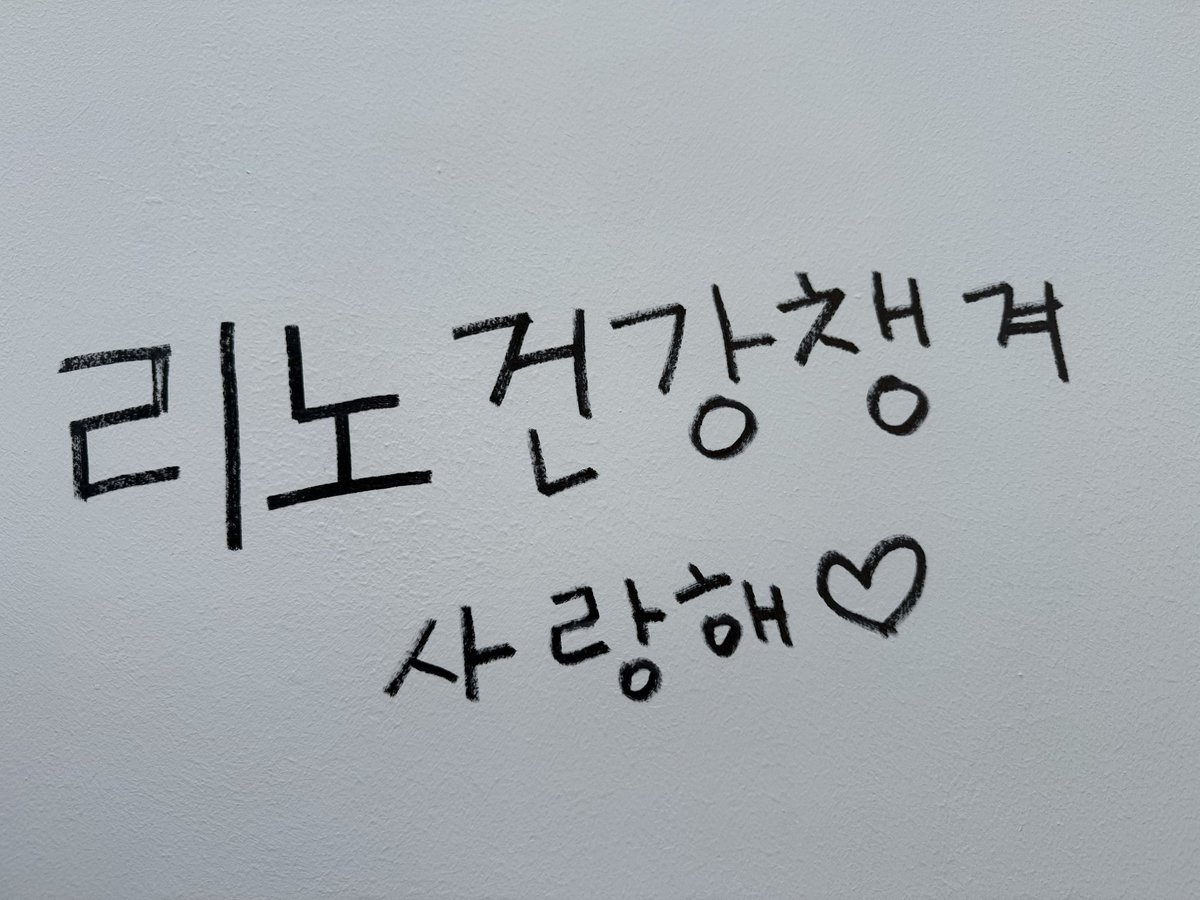 리노 건강챙겨
사랑해♡